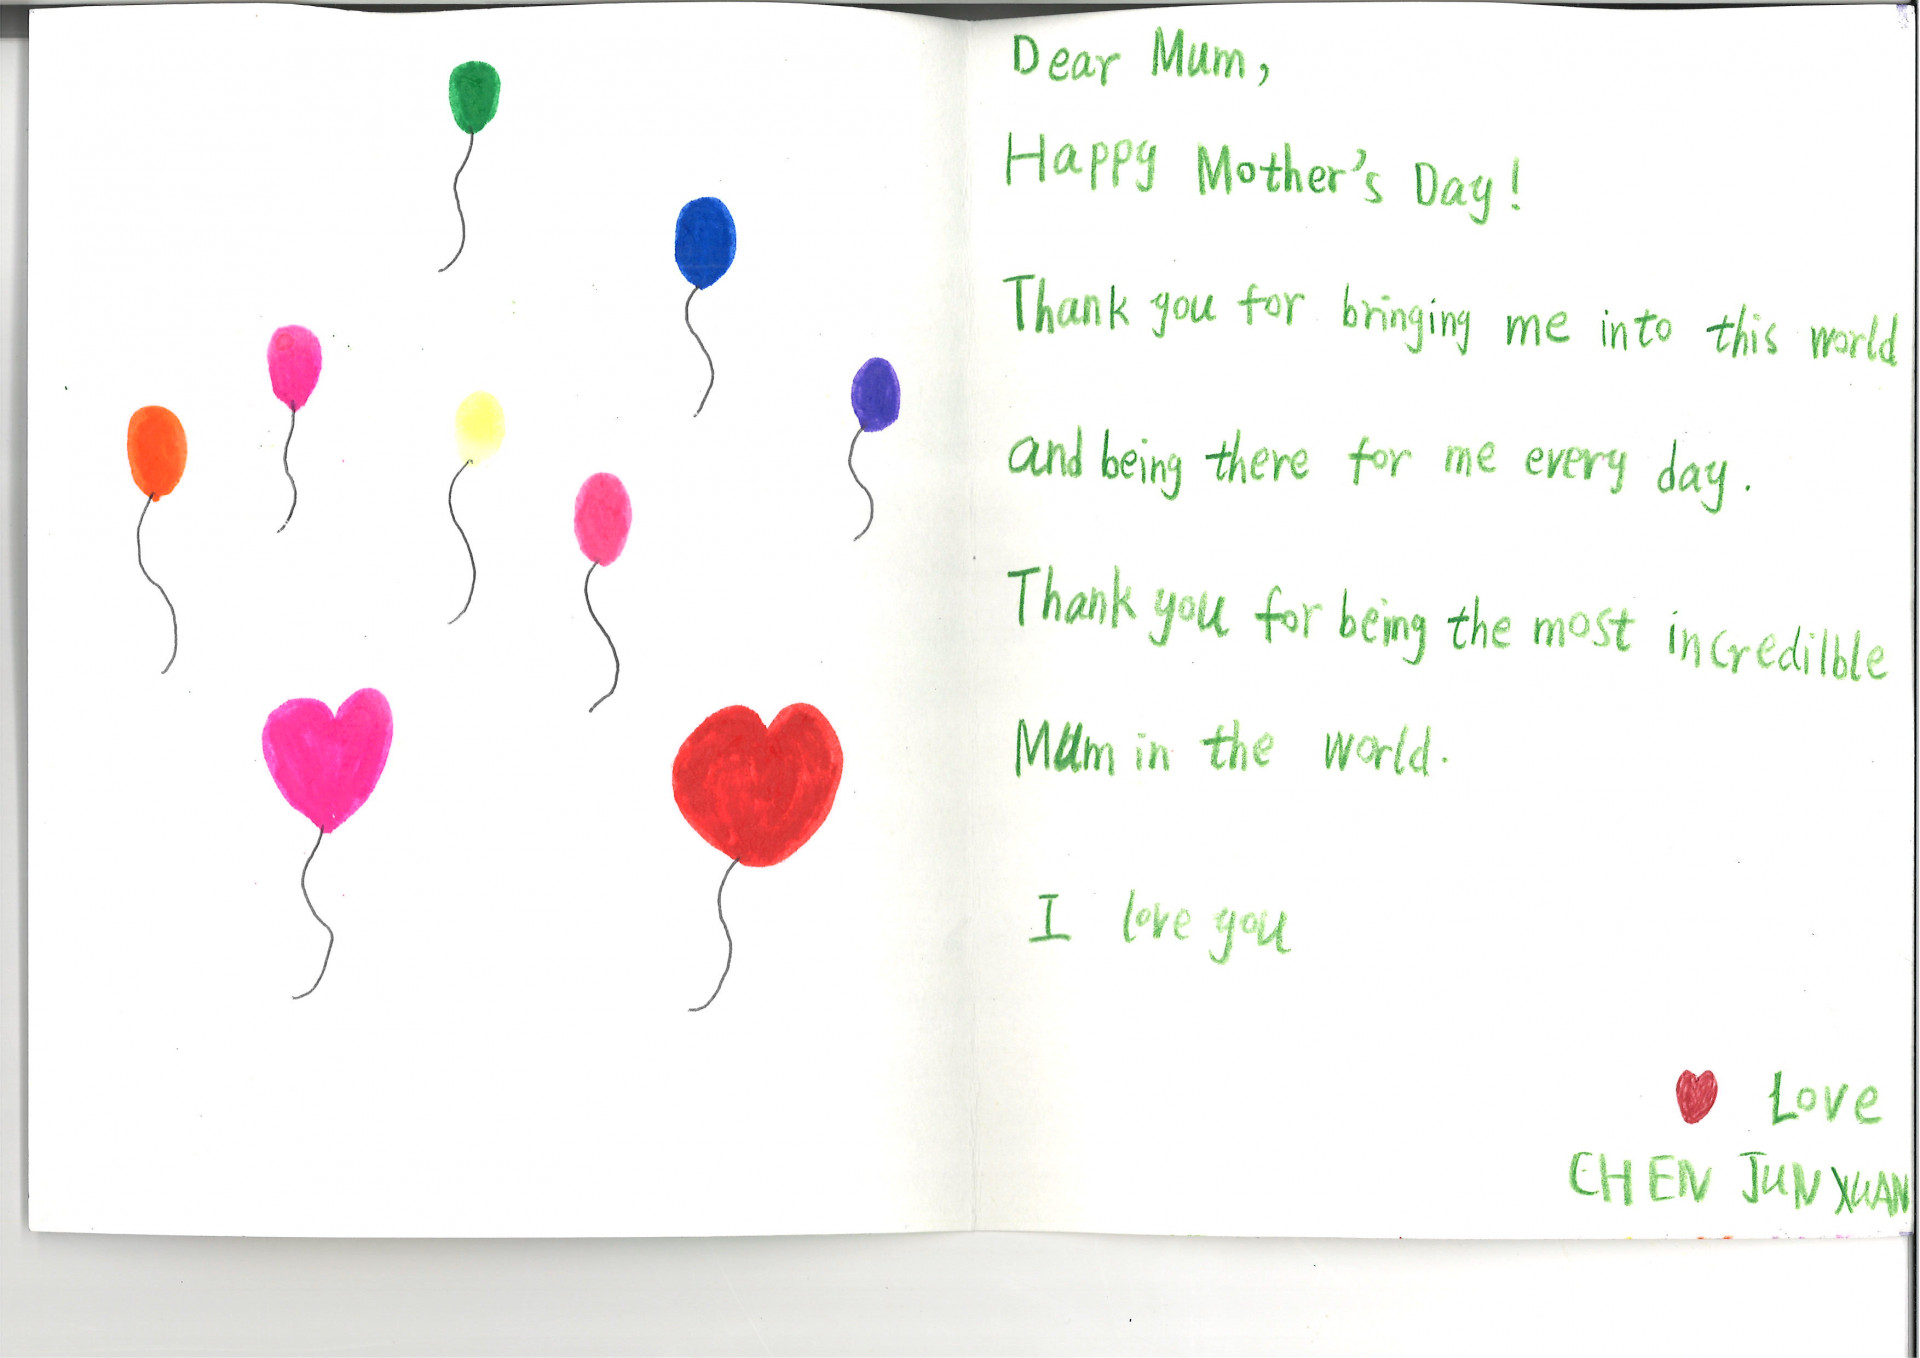 Dear Mum,
Happy Mother's Day!
Thank you for bringing me into this world
and being there for me every day.
Thank you for being the most incredilble
Mum in the world.
I love you
Love
CHEN JUN XUAN